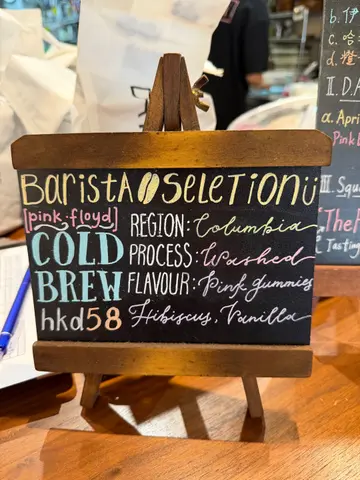 BARISTA SELETION ü
[pink floyd]
COLD
BREW
hkd58
REGION: Columbia
PROCESS: Washed
FLAVOUR: Pink gummies
Hibiscus, Vanilla
b. 伊
c. 哈
d.
II. D.A
a. Apri
Pink
III. Squ
The
Tasting